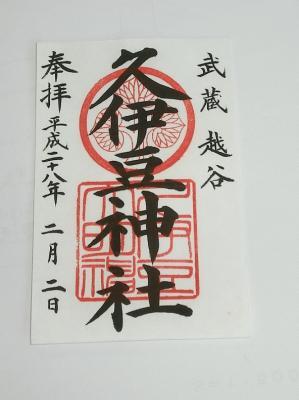 武蔵 越谷
久伊豆神社
奉拝 平成二十八年 二月 二日